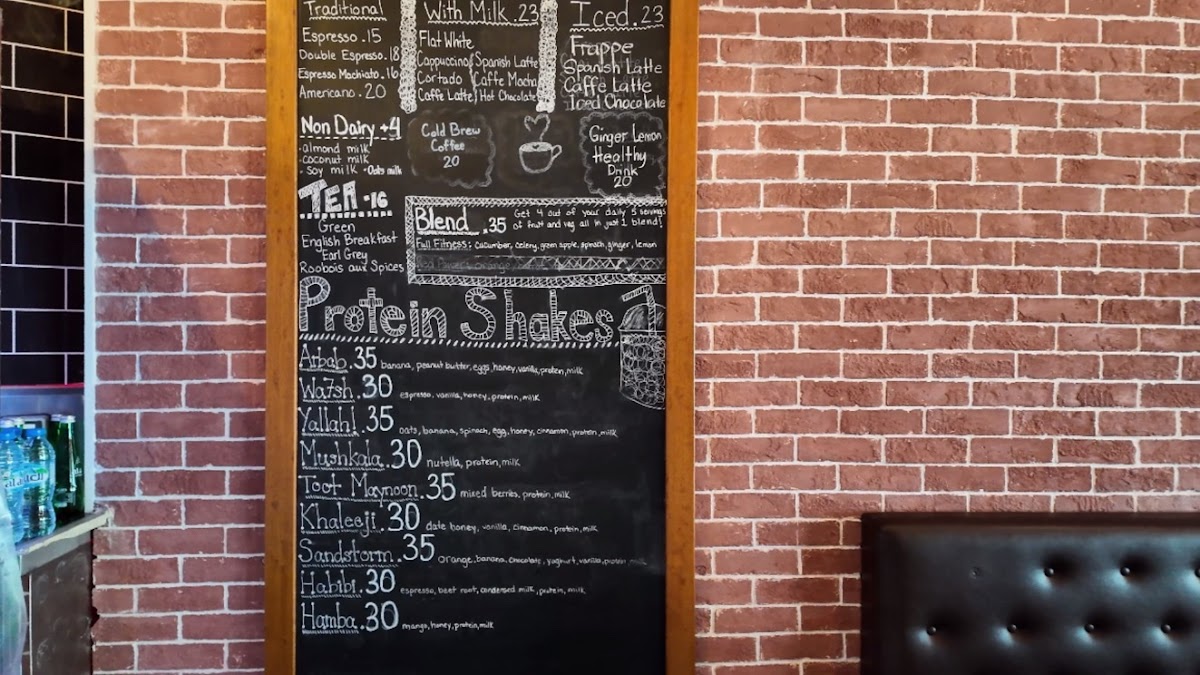 Traditional
Espresso.15
Double Espresso.18
Espresso Machiato.16
Americano.20
With Milk.23
Flat White
Cappucino Spanish Latte
Cortado Caffe Mocha
Caffe Latte Hot Chocolate
Iced.23
Frappe
Spanish Latte
Caffe Latte
Iced Chocolate
Non Dairy +4
·almond milk
·coconut milk
·soy milk ·Oats milk
Cold Brew
Coffee
20
Ginger Lemon
Healthy
Drink
20
TEA.16
Green
English Breakfast
Earl Grey
Roobois aux Spices
Blend.35 Get 4 out of your daily 5 servings
of fruit and veg all in just 1 blend!
Full Fitness: cucumber, celery, green apple, spinach, ginger, lemon
Protein Shakes
Arbab.35 banana, peanut butter, eggs, honey, vanilla, protein, milk
Wa7sh.30 espresso, vanilla, honey, protein, milk
Yallah!.35 oats, banana, spinach, egg, honey, cinnamon, protein, milk
Mushkala.30 nutella, protein, milk
Toot Maynoon.35 mixed berries, protein, milk
Khaleeji.30 date honey, vanilla, cinnamon, protein, milk
Sandstorm.35 orange, banana, chocolate, yoghurt, vanilla, protein, milk
Habibi.30 espresso, beet root, condensed milk, protein, milk
Hamba.30 mango, honey, protein, milk